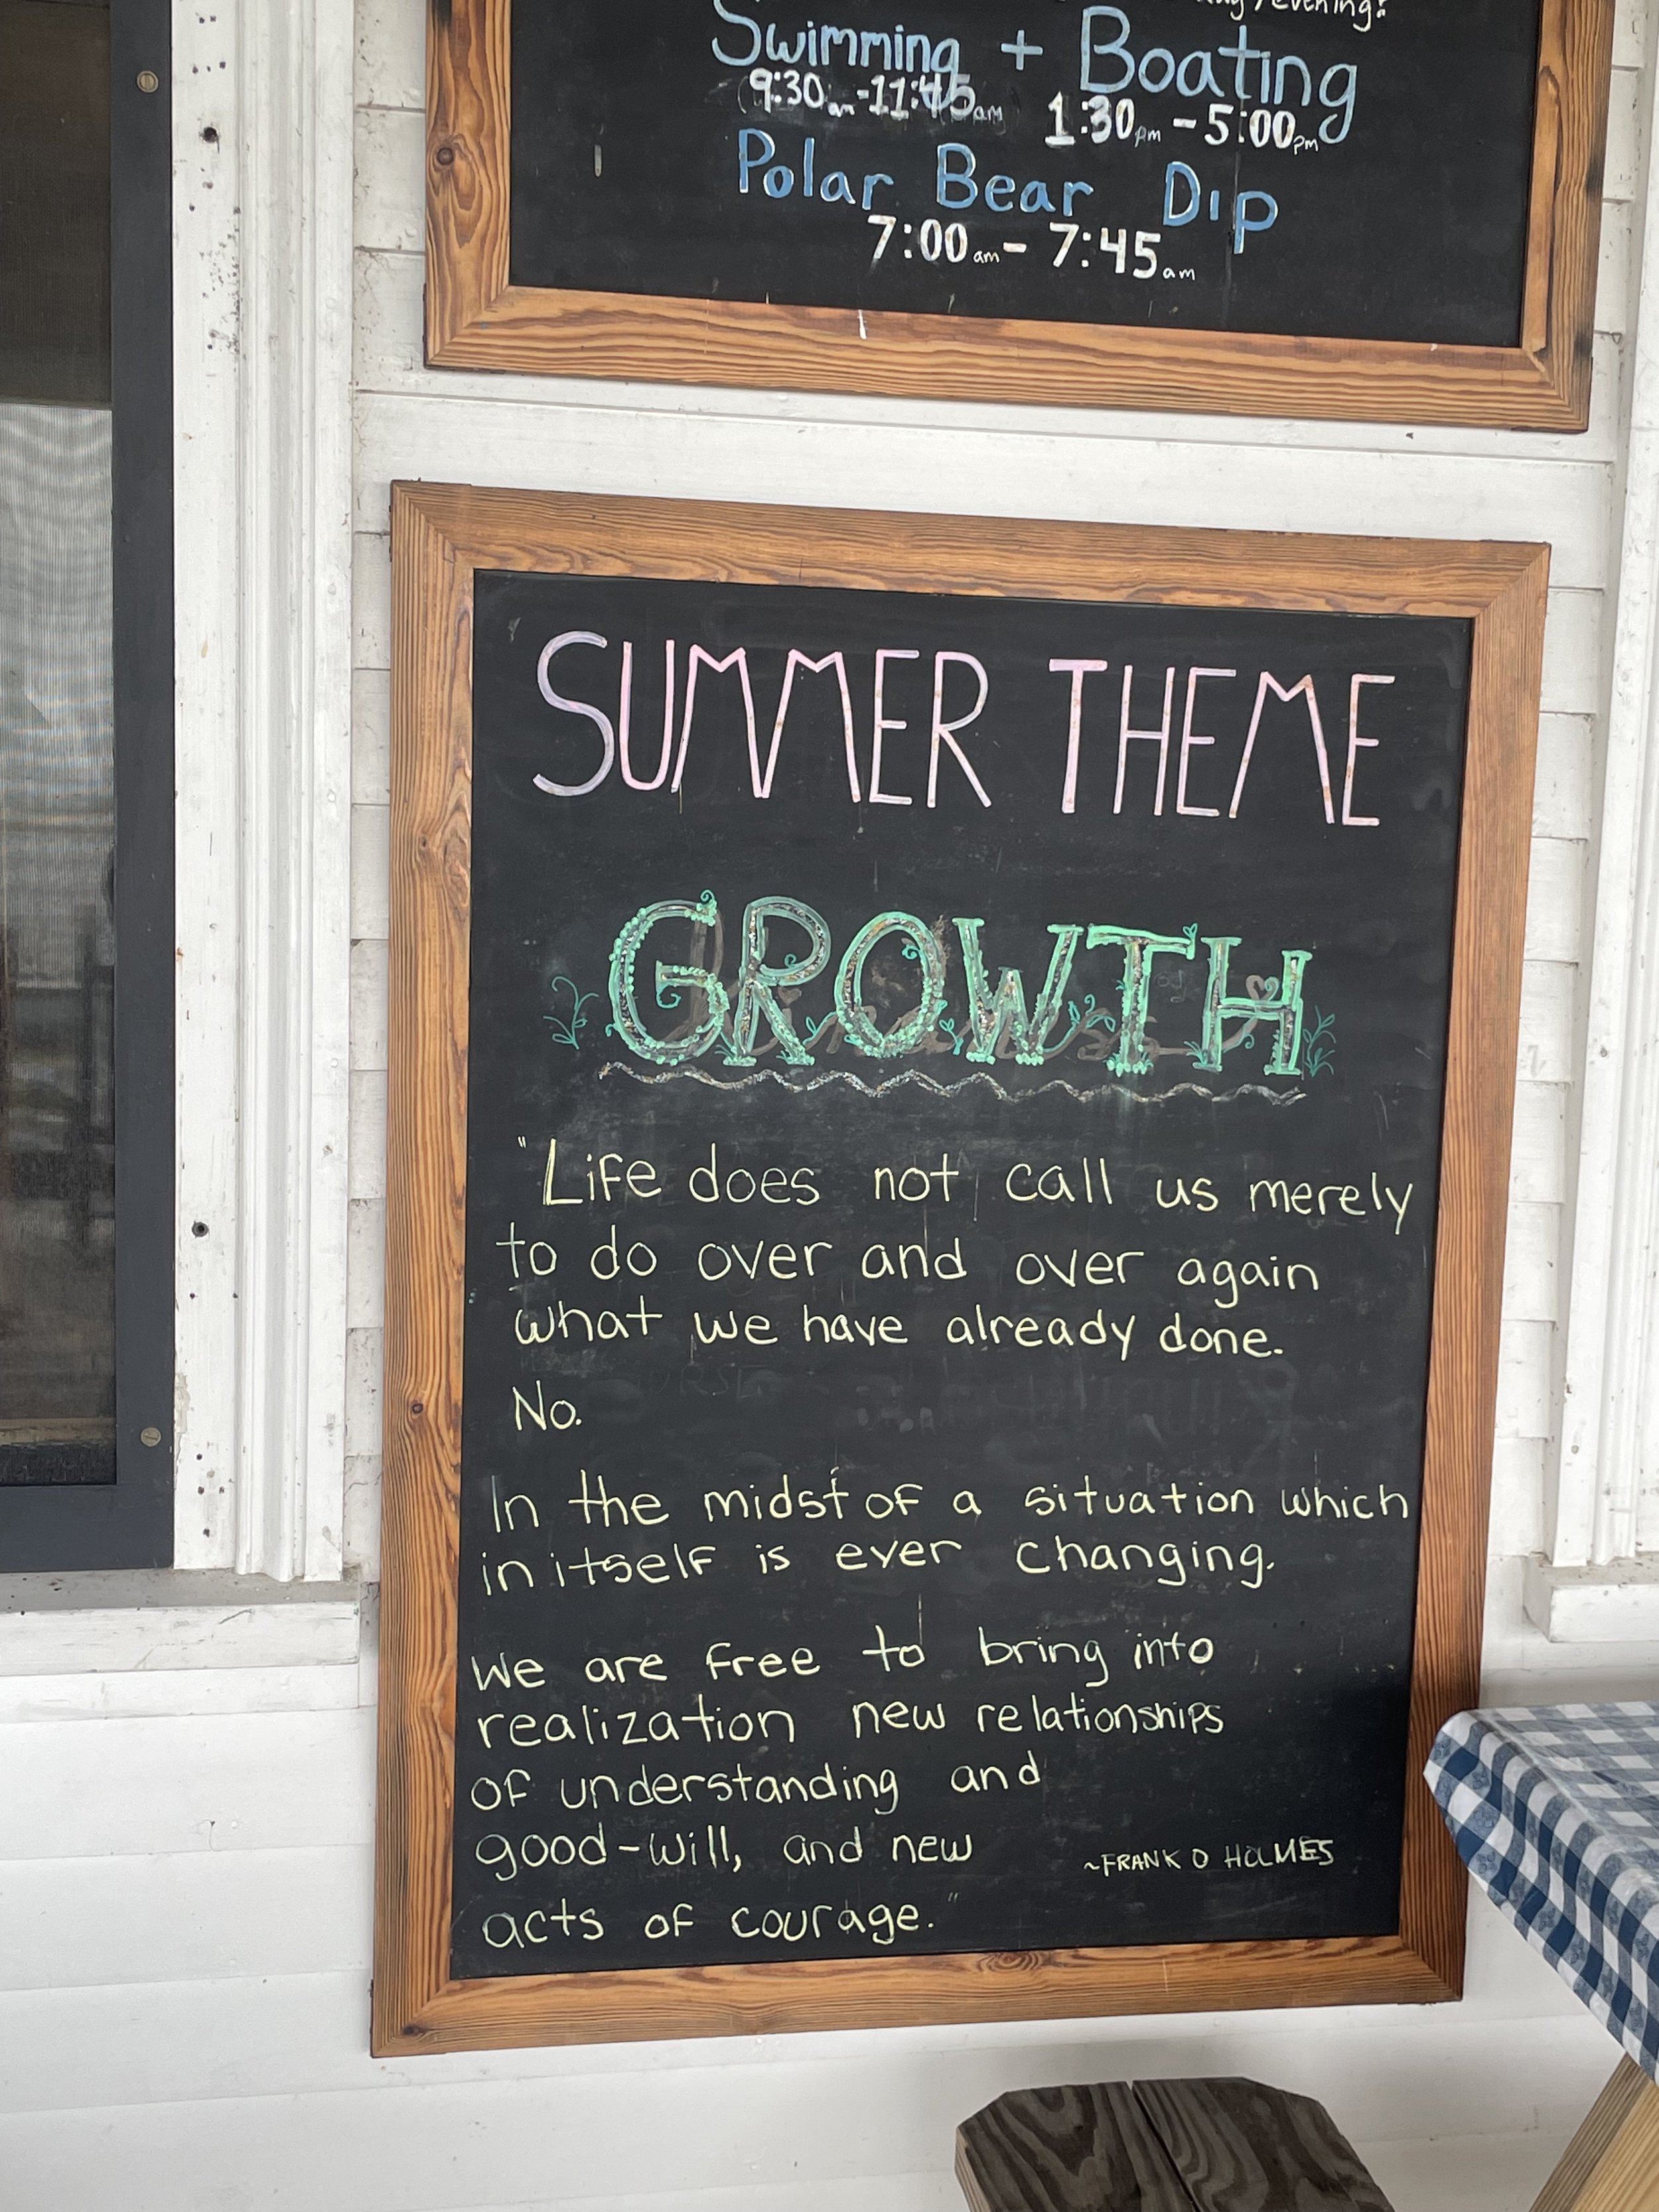 evening?
Swimming + Boating
9:30am-11:45am 1:30pm-5:00pm
Polar Bear Dip
7:00am-7:45am
SUMMER THEME
GROWTH
"Life does not call us merely
to do over and over again
what we have already done.
No.
In the midst of a situation which
in itself is ever changing.
We are free to bring into
realization new relationships
of understanding and
good-will, and new
~FRANK O HOLMES
acts of courage."